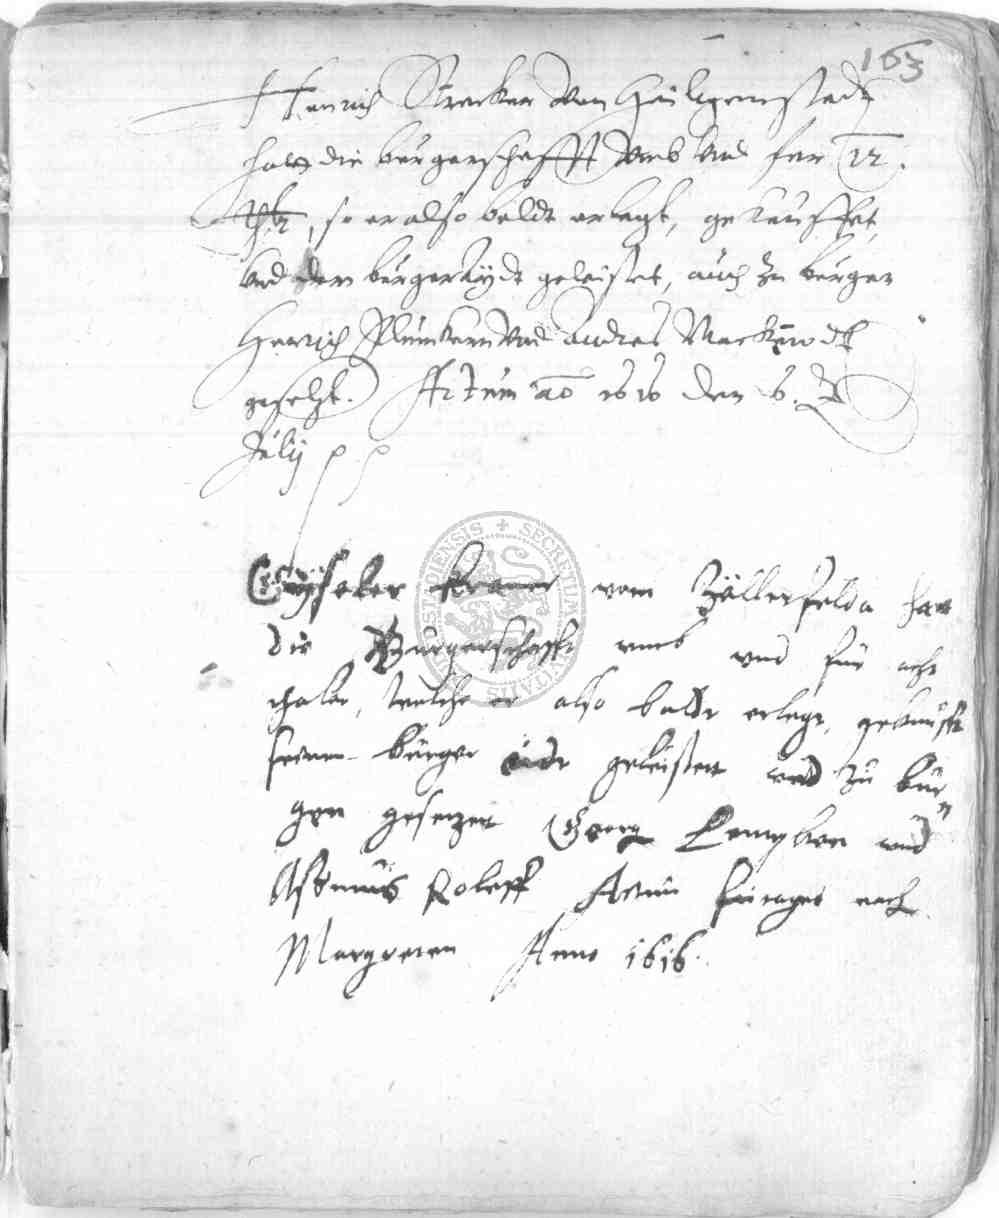 163
Henrich Strecker von Heiligenstadt
hatt die bürgerschafft vmb vnd fur 12.
thlr, so er also baldt erlegt, gekauffet,
vnd den bürger Eydt geleistet, auch zu bürgen
Henrich Plümkern vnd Andres Mackenrodt
gesetzt. Actum ao 1616 den 6.
Julij
vom Zöllerfelda hatt
die Burgerschafft vmb vnd für acht
thaler, welche er also baldt erlegt, gekaufft
seinen bürger eidt geleistett vnd zu bür
gen gesetzett Georg vnd
Assmus Roleff Actum freitages nach
Margreten Anno 1616.
SECRETUM